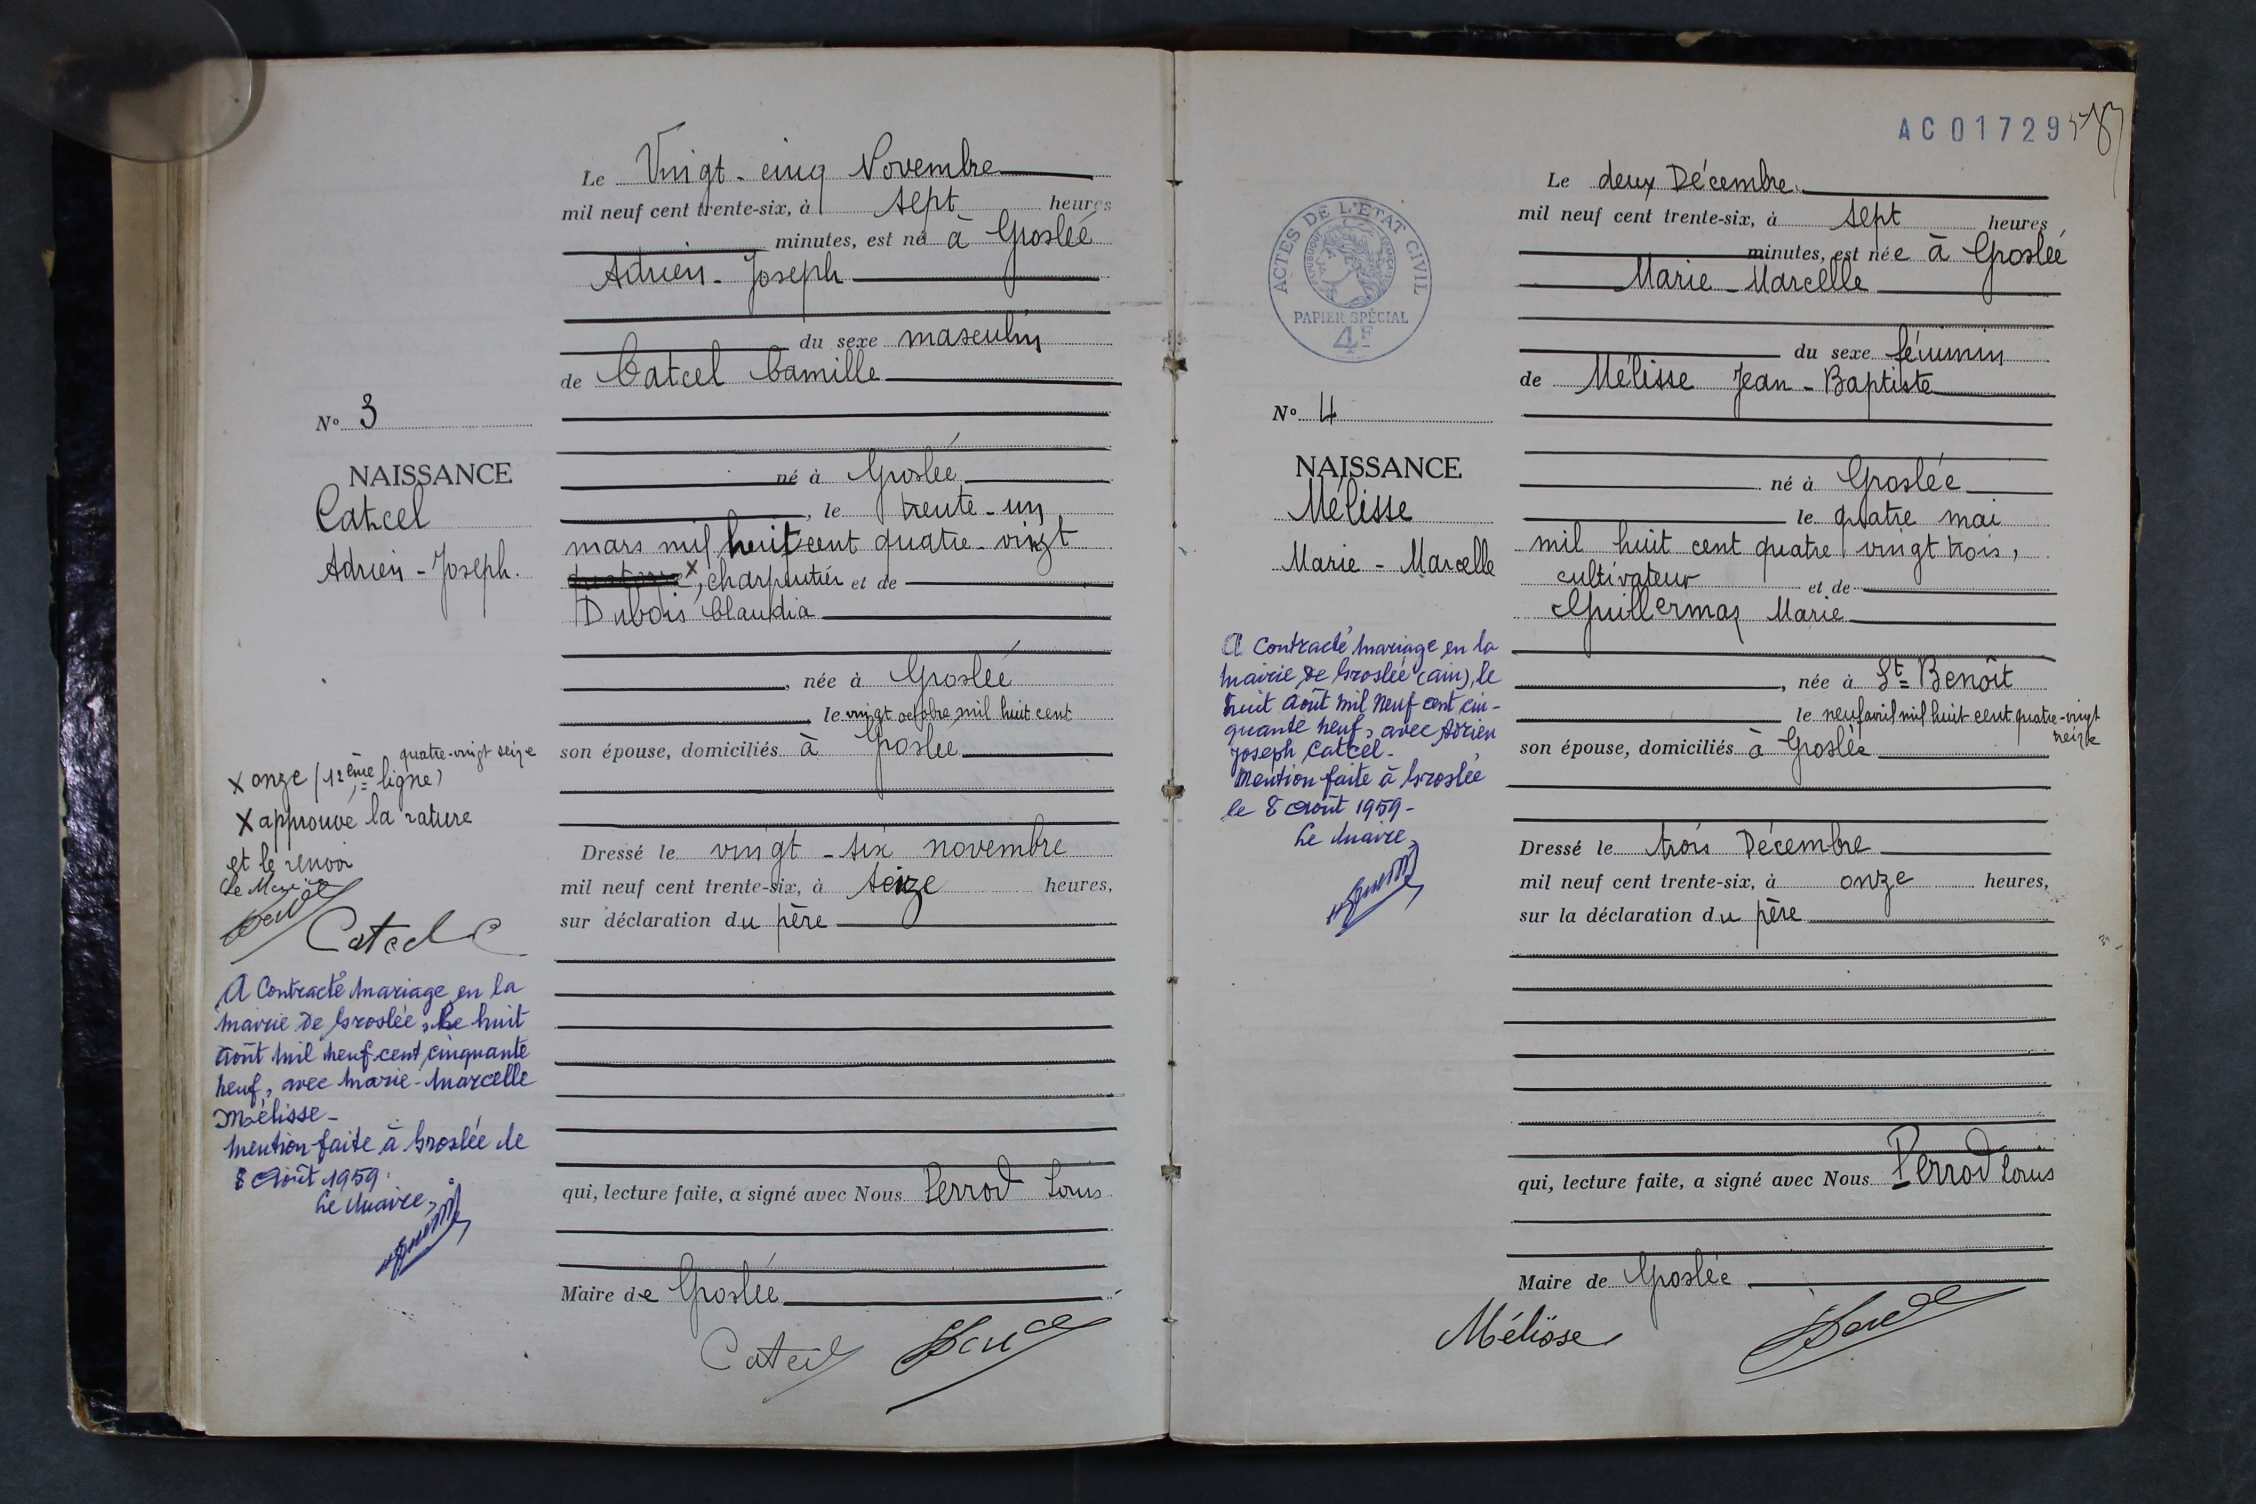 Le Vingt-cinq Novembre
mil neuf cent trente-six, à sept heures
minutes, est né à Groslée
Adrien-Joseph
du sexe masculin
de Catcel Camille
N° 3
NAISSANCE
Catcel
Adrien-Joseph.
né à Groslée
, le trente-un
mars mil huit cent quatre-vingt
x, charpentier et de
Dubois Claudia
, née à Groslée
, le vingt octobre mil huit cent
quatre-vingt seize
son épouse, domiciliés à Groslée
x onze (12ème ligne)
x approuvé la rature
et le renvoi
Le Maire
Catcel C
Dressé le vingt-six novembre
mil neuf cent trente-six, à seize heures,
sur déclaration du père
A Contracté mariage en la
mairie de Groslée, le huit
Août mil neuf cent cinquante
neuf, avec Marie-Marcelle
Mélisse-
Mention faite à Groslée le
8 Août 1959.
Le Maire,
qui, lecture faite, a signé avec Nous Perrod Louis
Maire de Groslée
Catcel
AC 017295
83
Le deux Décembre
mil neuf cent trente-six, à sept heures
minutes, est née à Groslée
Marie-Marcelle
ACTES DE L'ETAT CIVIL
PAPIER SPÉCIAL
4F
du sexe féminin
de Mélisse Jean-Baptiste
N° 4
NAISSANCE
Mélisse
Marie-Marcelle
né à Groslée
le quatre mai
mil huit cent quatre vingt trois,
cultivateur et de
Guillermaz Marie
, née à St Benoît
le neuf avril mil huit cent quatre-vingt
seize
son épouse, domiciliés à Groslée
A Contracté mariage en la
mairie de Groslée (Ain), le
huit Août mil neuf cent cin-
quante neuf, avec Adrien
Joseph Catcel-
Mention faite à Groslée
le 8 Août 1959-
Le Maire,
Dressé le trois Décembre
mil neuf cent trente-six, à onze heures,
sur la déclaration du père
qui, lecture faite, a signé avec Nous Perrod Louis
Maire de Groslée
Mélisse